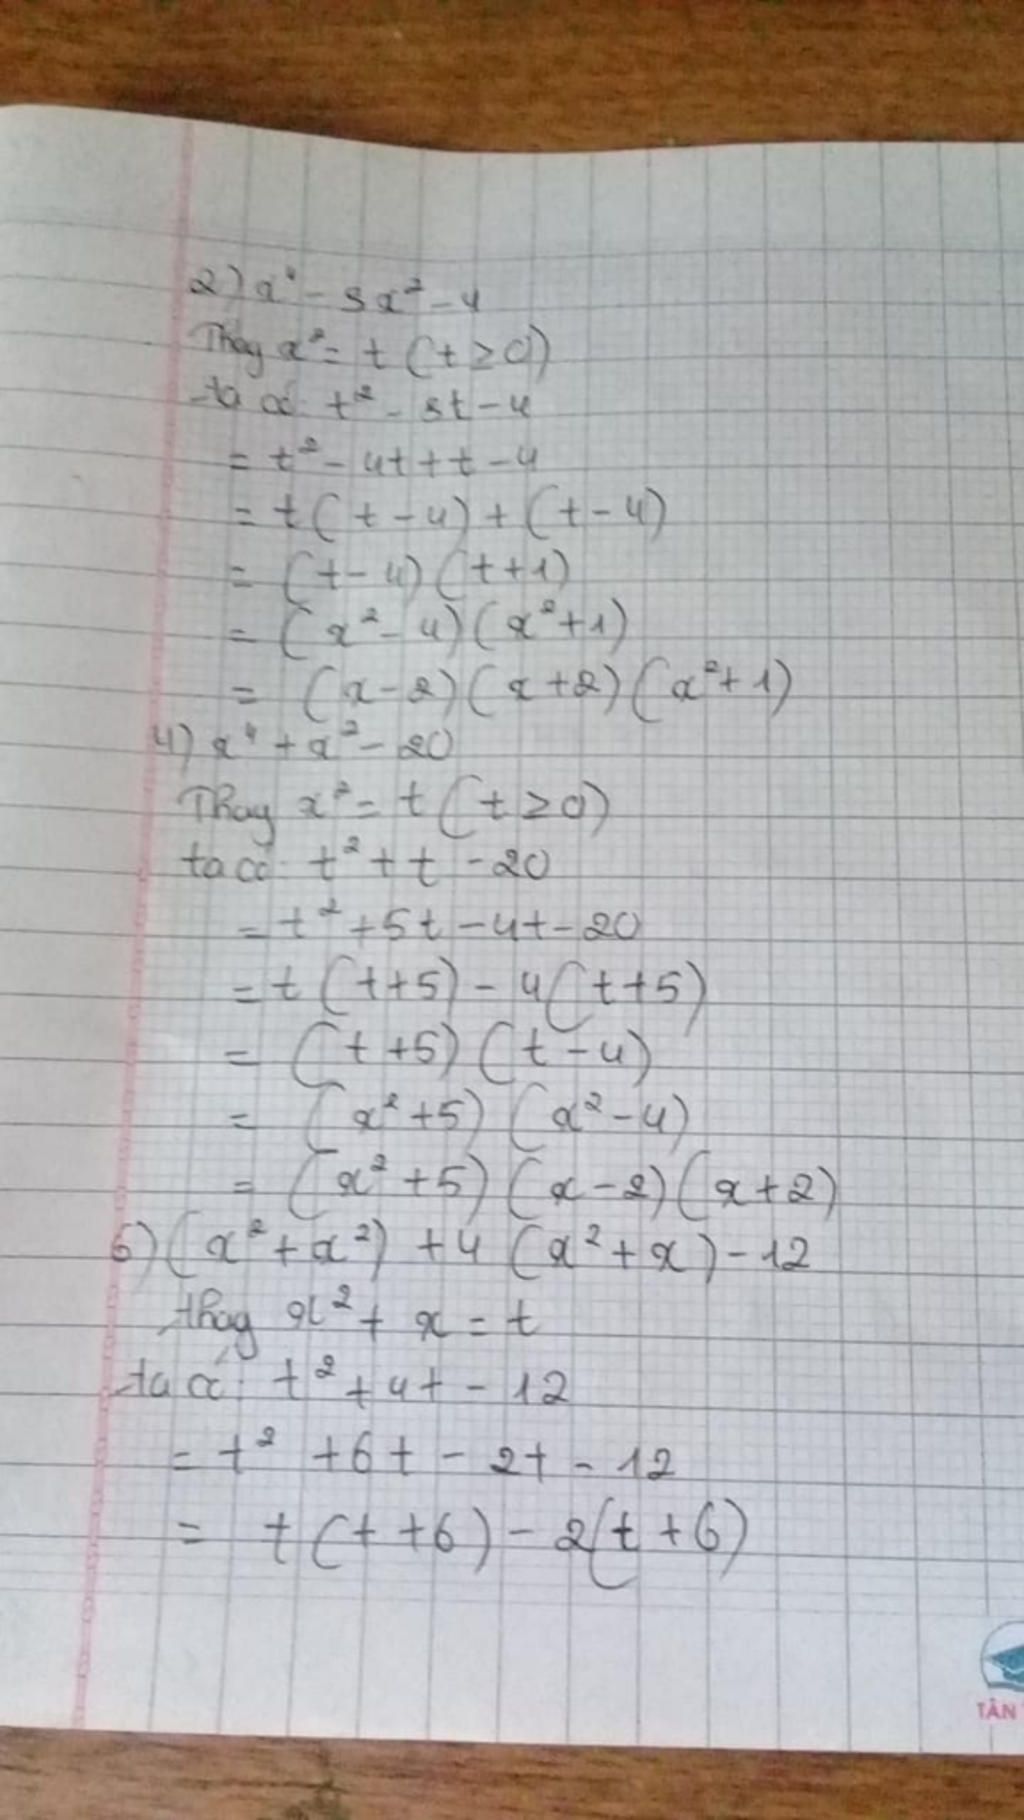 2) x⁴ - 3x² - 4
Thay x² = t (t ≥ 0)
ta có: t² - 3t - 4
= t² - 4t + t - 4
= t (t - 4) + (t - 4)
= (t - 4) (t + 1)
= (x² - 4) (x² + 1)
= (x - 2) (x + 2) (x² + 1)
4) x⁴ + x² - 20
Thay x² = t (t ≥ 0)
ta có: t² + t - 20
= t² + 5t - 4t - 20
= t (t + 5) - 4 (t + 5)
= (t + 5) (t - 4)
= (x² + 5) (x² - 4)
= (x² + 5) (x - 2) (x + 2)
6) (x² + x²) + 4 (x² + x) - 12
thay x² + x = t
ta có: t² + 4t - 12
= t² + 6t - 2t - 12
= t (t + 6) - 2 (t + 6)
TÂN